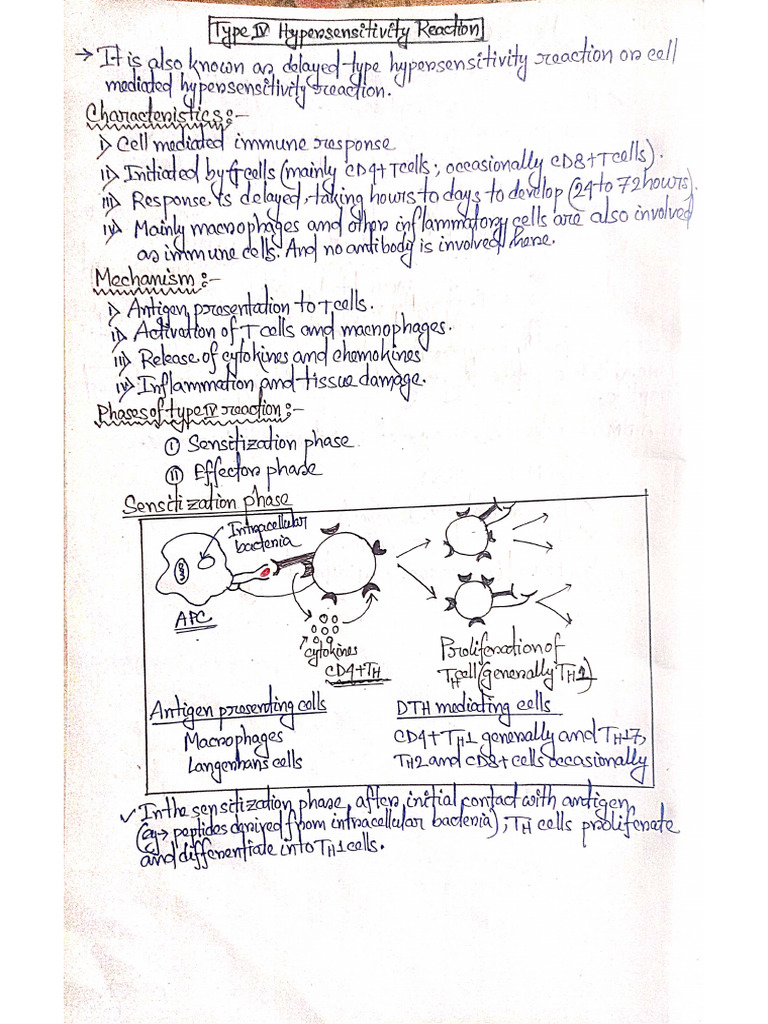 Type IV Hypersensitivity Reaction
→ It is also known as delayed-type hypersensitivity reaction or cell
mediated hypersensitivity reaction.
Characteristics:-
i> Cell mediated immune response
ii> Initiated by T cells (mainly CD4+ T cells; occasionally CD8+ T cells).
iii> Response is delayed, taking hours to days to develop (24 to 72 hours).
iv> Mainly macrophages and other inflammatory cells are also involved
as immune cells. And no antibody is involved here.
Mechanism:-
i> Antigen presentation to T cells.
ii> Activation of T cells and macrophages.
iii> Release of cytokines and chemokines
iv> Inflammation and tissue damage.
Phases of type IV reaction:-
(i) Sensitization phase
(ii) Effector phase
Sensitization phase
Intracellular
bacteria
APC
Cytokines
CD4+TH
Proliferation of
TH cell (generally TH1)
Antigen presenting cells
Macrophages
Langerhans cells
DTH mediating cells
CD4+ TH1 generally and TH17,
TH2 and CD8+ cells occasionally
✓ In the sensitization phase, after initial contact with antigen
(eg→ peptides derived from intracellular bacteria), TH cells proliferate
and differentiate into TH1 cells.